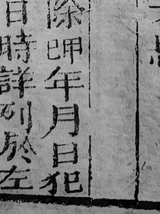 除呷年月日犯
日時詳列於左